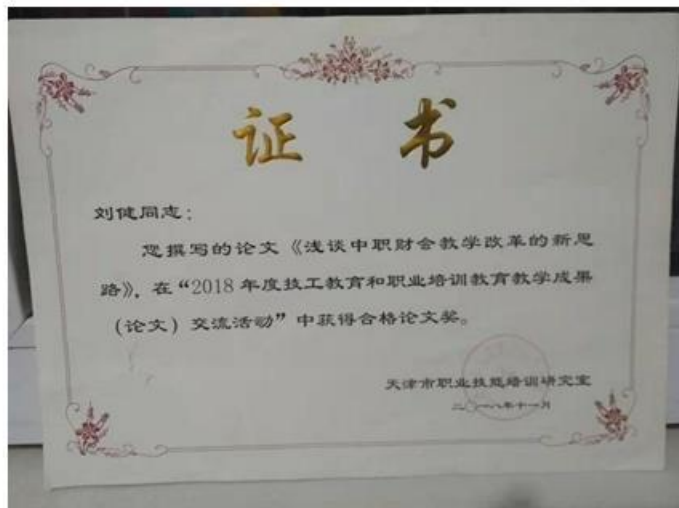 证书
刘健同志：
您撰写的论文《浅谈中职财会教学改革的新思
路》，在“2018年度技工教育和职业培训教育教学成果
（论文）交流活动”中获得合格论文奖。
天津市职业技能培训研究室
二〇一八年十一月